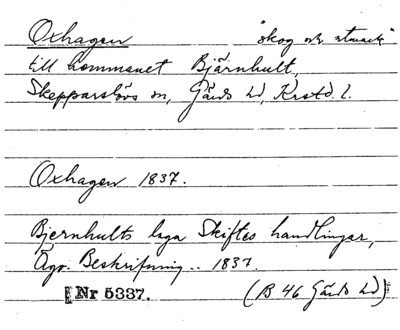 Oxhagen "skog och utmark"
till hemmanet Bjärnhult,
Skepparslövs sn, Gärds hd, Krstd. l.
Oxhagen 1837.
Bjernhults laga Skiftes handlingar,
Ägo. Beskrifning .. 1837.
Nr 5337. (B 46 Gärds hd)